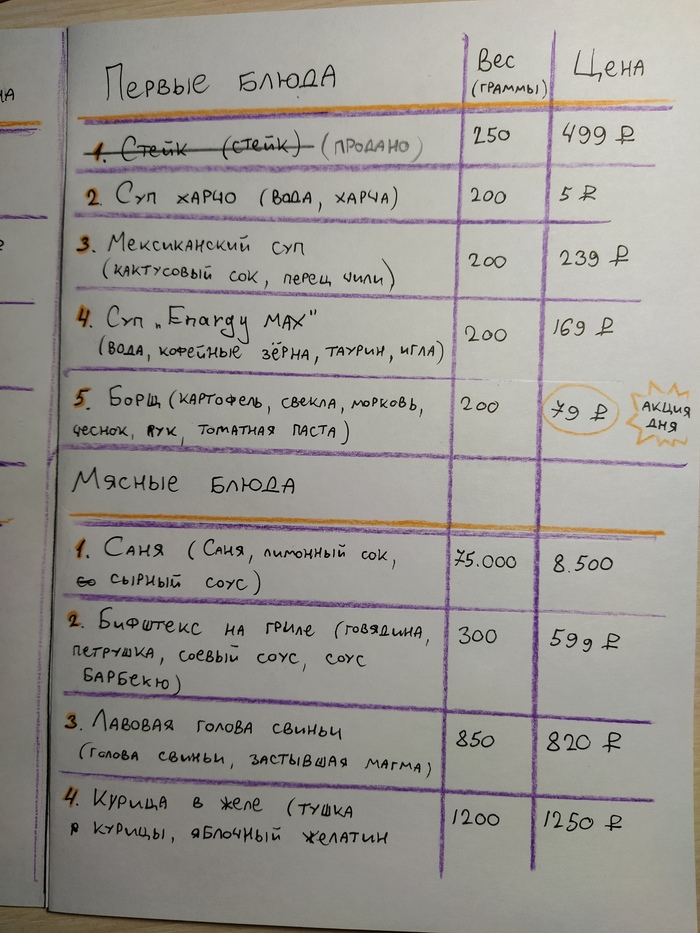 НА
Первые блюда
Вес
(граммы)
Цена
1. Стейк (стейк) (продано)
250
499 ₽
2. Суп харчо (вода, харча)
200
5 ₽
3. Мексиканский суп
(кактусовый сок, перец чили)
200
239 ₽
4. Суп „Enargy MAX"
(вода, кофейные зёрна, таурин, игла)
200
169 ₽
5. Борщ (картофель, свекла, морковь,
чеснок, лук, томатная паста)
200
79 ₽
Акция
дня
Мясные блюда
1. Саня (Саня, лимонный сок,
сырный соус)
75.000
8.500
2. Бифштекс на гриле (говядина,
петрушка, соевый соус, соус
барбекю)
300
599 ₽
3. Лавовая голова свиньи
(голова свиньи, застывшая магма)
850
820 ₽
4. Курица в желе (тушка
курицы, яблочный желатин
1200
1250 ₽